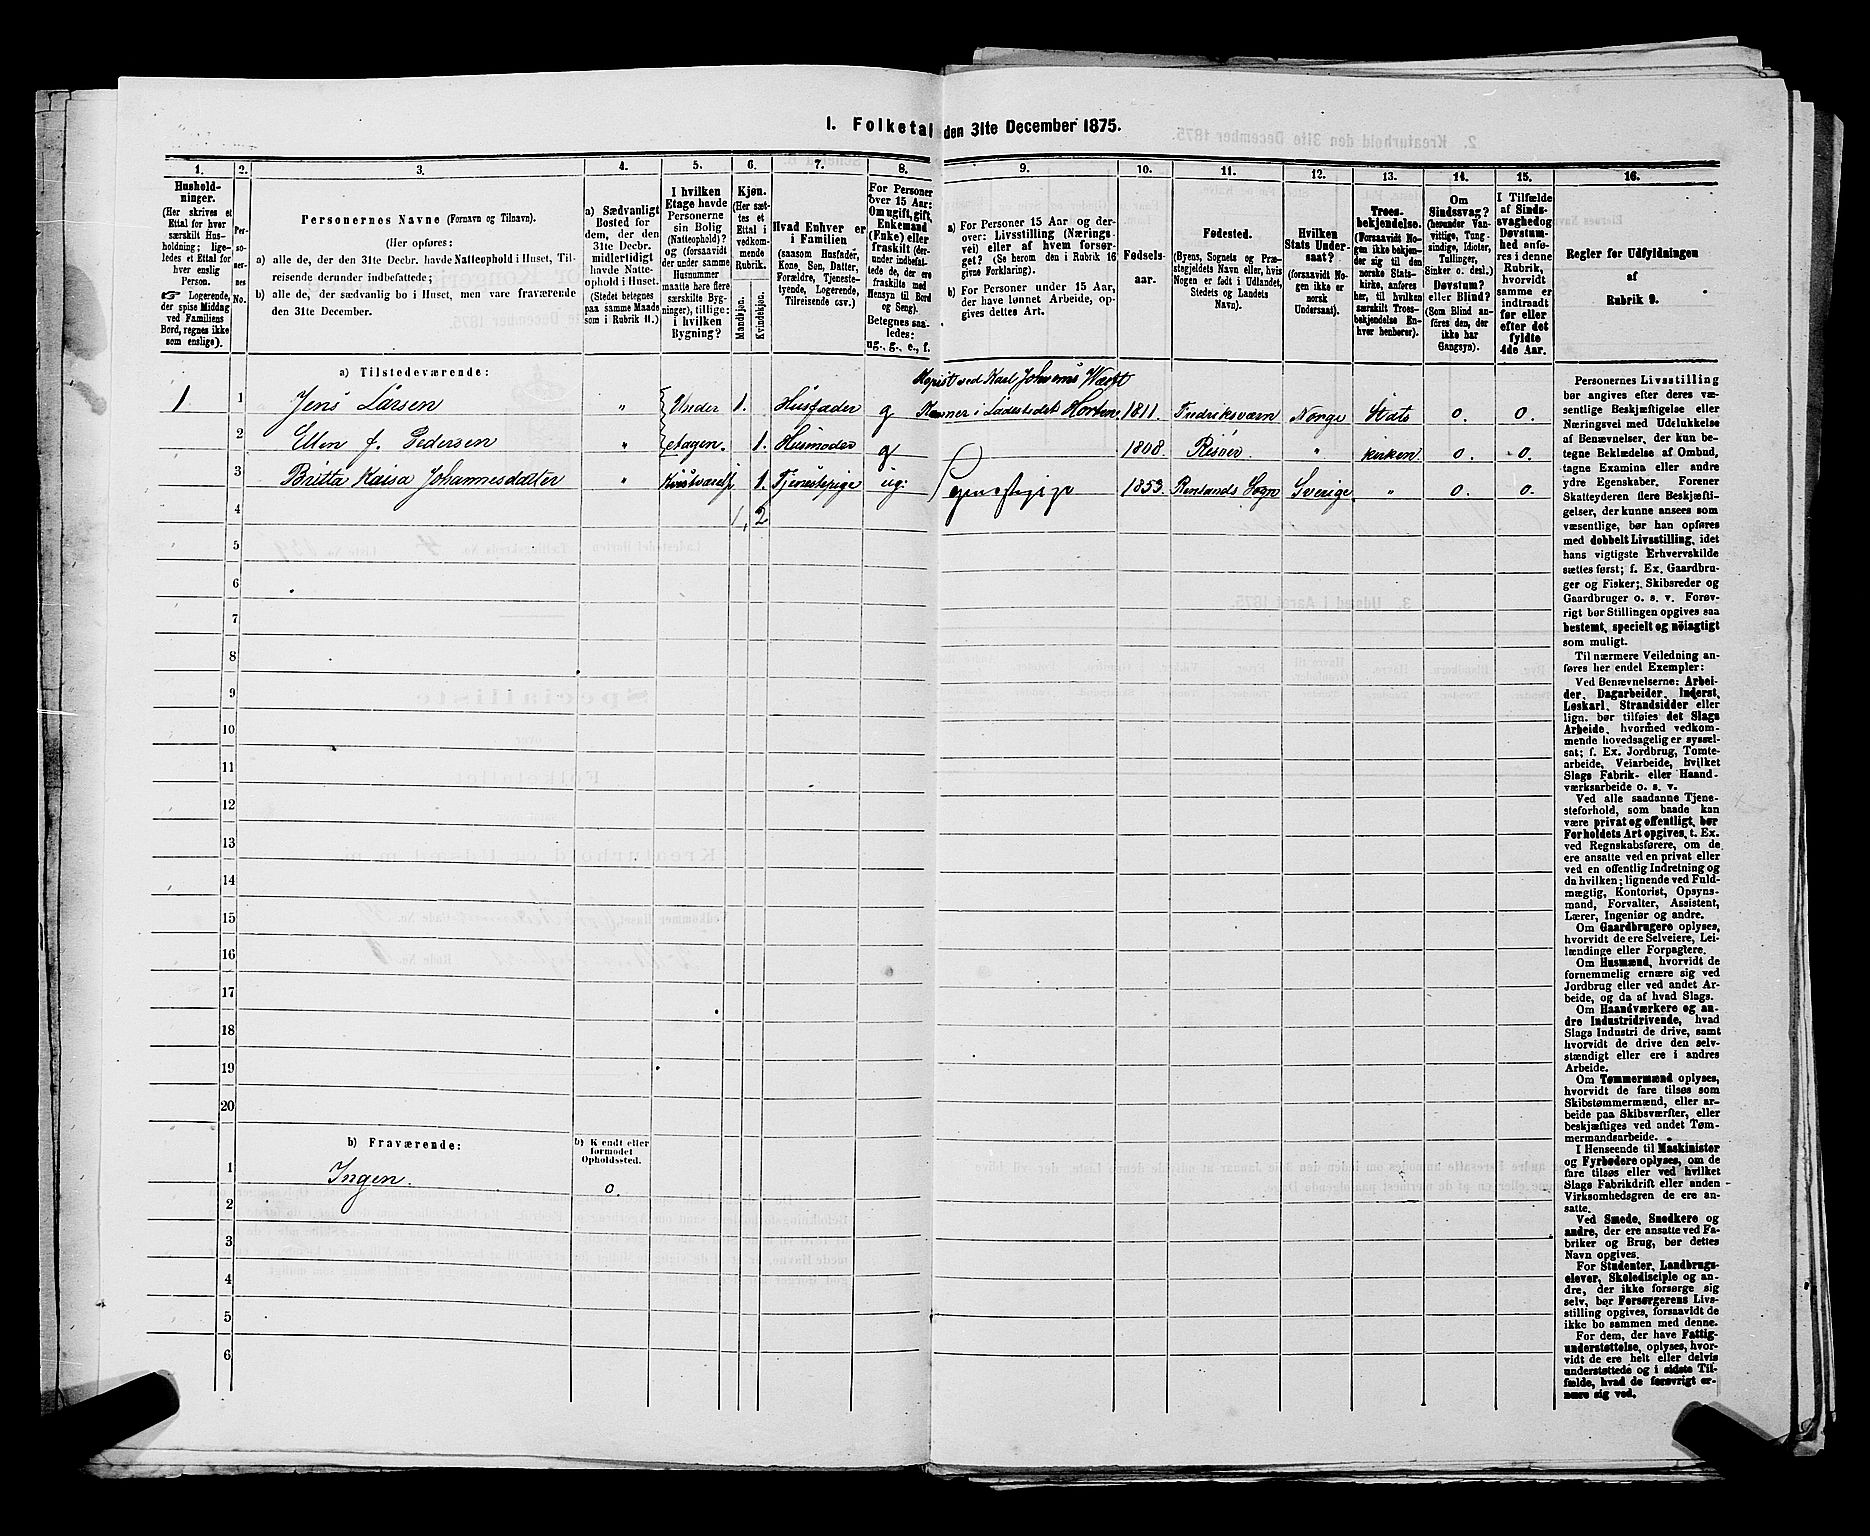 I. Folketal den 31te December 1875.
1.
Hushold-
ninger.
(Her skrives et
Ettal for hver
særskilt Hus-
holdning; lige-
ledes et Ettal for
hver enslig
Person.
☞ Logerende,
der spise Middag
ved Familiens
Bord, regnes ikke
som enslige).
2.
Per-
so-
ner-
nes
No.
3.
Personernes Navne (Fornavn og Tilnavn).
(Her opføres:
a) alle de, der den 31te Decbr. havde Natteophold i Huset, Til-
reisende derunder indbefattede;
b) alle de, der sædvanlig bo i Huset, men vare fraværende
den 31te December).
4.
a) Sædvanligt
Bosted for
dem, der den
31te Decbr.
midlertidigt
havde Natte-
ophold i Huset.
(Stedet betegnes
paa samme Maade
som i Rubrik 11.)
5.
I hvilken
Etage havde
Personerne
sin Bolig
(Natteophold)?
og (forsaavidt
der under samme
Husnummer
maatte høre flere
særskilte Byg-
ninger), tillige:
i hvilken
Bygning?
6.
Kjøn.
(Her sæt-
tes et
Ettal i
vedkom-
mende
Rubrik.
Mandkjøn.
Kvindekjøn.
7.
Hvad Enhver er
i Familien
(saasom Husfader,
Kone, Søn, Datter,
Forældre, Tjeneste-
tyende, Logerende,
Tilreisende osv.)
8.
For Personer
over 15 Aar:
Om ugift, gift,
Enkemand
(Enke) eller
fraskilt (der-
under indbefat-
tede de, der ere
fraskilte med
Hensyn til Bord
og Seng).
Betegnes saa-
ledes:
ug., g., e., f.
9.
a) For Personer 15 Aar og der-
over: Livsstilling (Nærings-
vei) eller af hvem forsør-
get? (Se herom den i Rubrik 16
givne Forklaring).
b) For Personer under 15 Aar,
der have lønnet Arbeide, op-
gives dettes Art.
10.
Fødsels-
aar.
11.
Fødested.
(Byens, Sognets og Præ-
stegjeldets Navn eller, hvis
Nogen er født i Udlandet,
Stedets og Landets
Navn).
12.
Hvilken
Stats Under-
saat?
(forsaavidt No-
gen ikke er
norsk
Undersaat).
13.
Troes-
bekjendelse.
(Forsaavidt No-
gen ikke bekjen-
der sig til den
norske Stats-
kirke, anføres
her, til hvilken
særskilt Troes-
bekjendelse En-
hver henhører).
14.
Om
Sindssvag?
(herunder Van-
vittige, Tung-
sindige, Idioter,
Tullinger,
Sinker o. desl.)
Døvstum?
eller Blind?
(Som Blind an-
føres den, der
ikke har
Gangsyn).
15.
I Tilfælde
af Sinds-
svaghed og
Døvstum-
hed anfø-
res i denne
Rubrik,
hvorvidt
samme er
indtraadt
før eller
efter det
fyldte
4de Aar.
16.
Regler for Udfyldningen
af
Rubrik 9.
a) Tilstedeværende:
Kopist ved Karl Johans Værft
1 1 Jens Larsen " Under 1. Husfader g Kæmner i Ladestedet Horten 1811. Fredriksværn Norge Stats 0. 0.
2 Ellen f. Pedersen " etagen. 1. Husmoder g 1808 Risøer " kirken 0. 0.
3 Britta Kaisa Johannesdatter " 1. Tjenestepige ug: Tjenestepige 1853 Sogn Sverige " 0. 0.
4 1, 2
5
6
7
8
9
10
11
12
13
14
15
16
17
18
19
20
b) Fraværende:
b) Kjendt eller
formodet
Opholdssted.
1 Ingen. 0.
2
3
4
5
6
Personernes Livsstilling
bør angives efter deres væ-
sentlige Beskjæftigelse eller
Næringsvei med Udelukkelse
af Benævnelser, der kun be-
tegne Beklædelse af Ombud,
tagne Examina eller andre
ydre Egenskaber. Forener
Skatteyderen flere Beskjæfti-
gelser, der kunne ansees som
væsentlige, bør han opføres
med dobbelt Livsstilling, idet
hans vigtigste Erhvervskilde
sættes først; f. Ex. Gaardbru-
ger og Fisker; Skibsreder og
Gaardbruger o. s. v. Forøv-
rigt bør Stillingen opgives saa
bestemt, specielt og nøiagtigt
som muligt.
Til nærmere Veiledning an-
føres her endel Exempler:
Ved Benævnelserne: Arbei-
der, Dagarbeider, Inderst,
Løskarl, Strandsidder eller
lign. bør tilføies det Slags
Arbeide, hvormed vedkom-
mende hovedsagelig er syssel-
sat; f. Ex. Jordbrug, Tomte-
arbeide, Veiarbeide, hvilket
Slags Fabrik- eller Haand-
værksarbeide o. s. v.
Ved alle saadanne Tjene-
steforhold, som baade kan
være privat og offentligt, bør
Forholdets Art opgives, t. Ex.
ved Regnskabsførere, om de
ere ansatte ved en privat eller
ved en offentlig Indretning og
da hvilken; lignende ved Fuld-
mægtig, Kontorist, Opsyns-
mand, Forvalter, Assistent,
Lærer, Ingeniør og andre.
Om Gaardbrugere oplyses,
hvorvidt de ere Selveiere, Lei-
lændinge eller Forpagtere.
Om Husmænd, hvorvidt de
fornemmelig ernære sig ved
Jordbrug eller ved andet Ar-
beide, og da af hvad Slags.
Om Haandværkere og an-
dre Industridrivende, hvad
Slags Industri de drive, samt
hvorvidt de drive den selv-
stændigt eller ere i andres
Arbeide.
Om Tømmermænd oplyses,
hvorvidt de fare tilsøs som
Skibstømmermænd, eller ar-
beide paa Skibsværfter, eller
beskjæftiges ved andet Tøm-
mermandsarbeide.
I Henseende til Maskinister
og Fyrbødere oplyses, om de
fare tilsøs eller ved hvilket
Slags Fabrikdrift eller anden
Virksomhedsgren de ere an-
satte.
Ved Smede, Snedkere og
andre, der ere ansatte ved Fa-
briker og Brug, bør dettes
Navn opgives.
For Studenter, Landbrugs-
elever, Skoledisciple og an-
dre, der ikke forsørge sig
selv, bør Forsørgerens Livs-
stilling opgives, forsaavidt de
ikke bo sammen med denne.
For dem, der have Fattig-
understøttelse, oplyses, hvor-
vidt de ere helt eller delvis
understøttede og i sidste Til-
fælde, hvad de forøvrigt er-
nære sig ved.